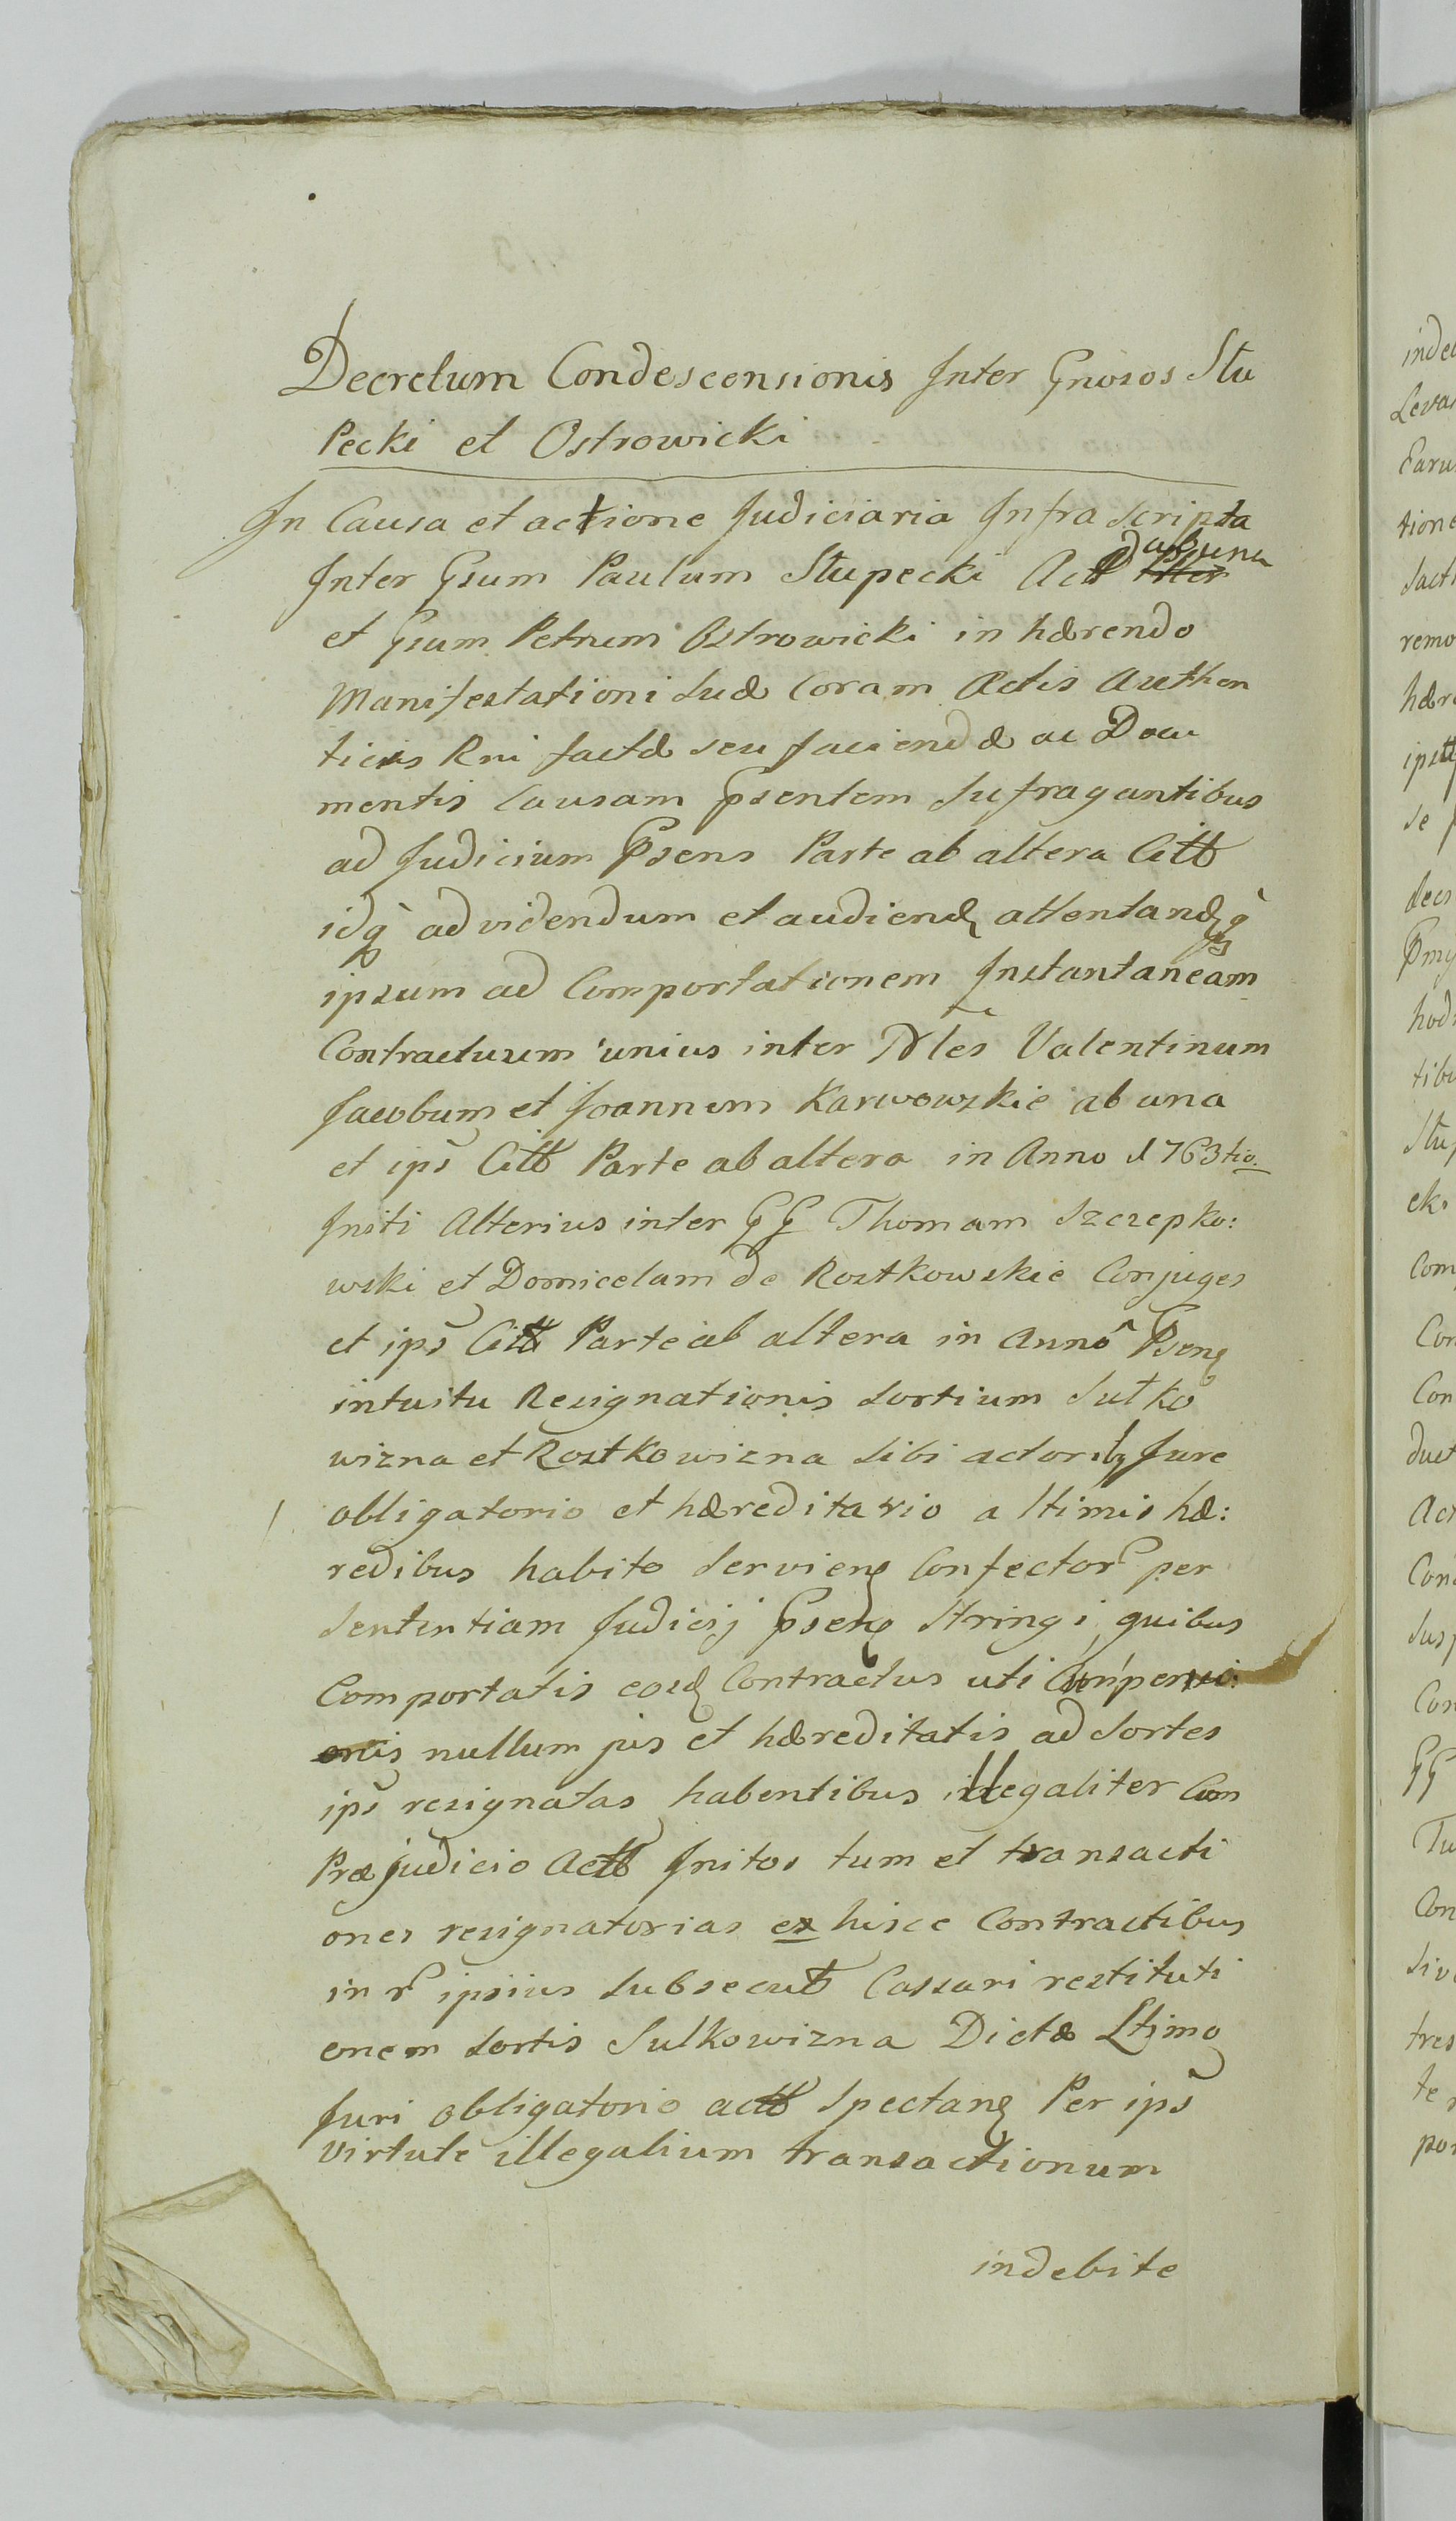 Decretum Condescensionis Inter Gnosos Stu
pecki et Ostrowicki
In Causa et actione Judiciaria Infra Scripta
Inter Gsum Paulum Stupecki Act ab una
et Gsum Petrum Ostrowicki in hærendo
Manifestationi Suæ Coram Actis Authen
ticis Rni factæ seu faciendæ ac Docu
mentis Causam Psentem Sufragantibus
ad Judicium Psens Parte ab altera Citt
idq̀ ad videndum et audiend attentandq̀
ipsum ad Comportationem Instantaneam
Contractuum unius inter Nles Valentinum
Jacobum et Joannem Karwowskie ab una
et ips Citt Parte ab altera in Anno 1763tio.
Initi Alterius inter GG Thomam Szczepko:
wski et Domicelam de Rostkowskie Conjuges
et ips Citt Parte ab altera in Anno Psen
intuitu Resignationis Sortium Sułko
wizna et Rostkowizna Sibi actoribꝫ Jure
obligatorio et hæreditario a ltimis hæ:
redibus habito Servien Confector per
Sententiam Judicij Psen Stringi quibus
Comportatis eosd Contractus uti
onis nullum jus et hæreditatis ad Sortes
ips resignatas habentibus illegaliter Cum
Præjudicio Actt Initos tum et transacti
ones resignatorias ex hisce Contractibus
in r ipsius Subsecut Cassari restituti
onem Sortis Sulkowizna Dictæ Ltimo
Juri obligatorio actt Spectan Per ips
Virtute illegalium transactionum
indebite